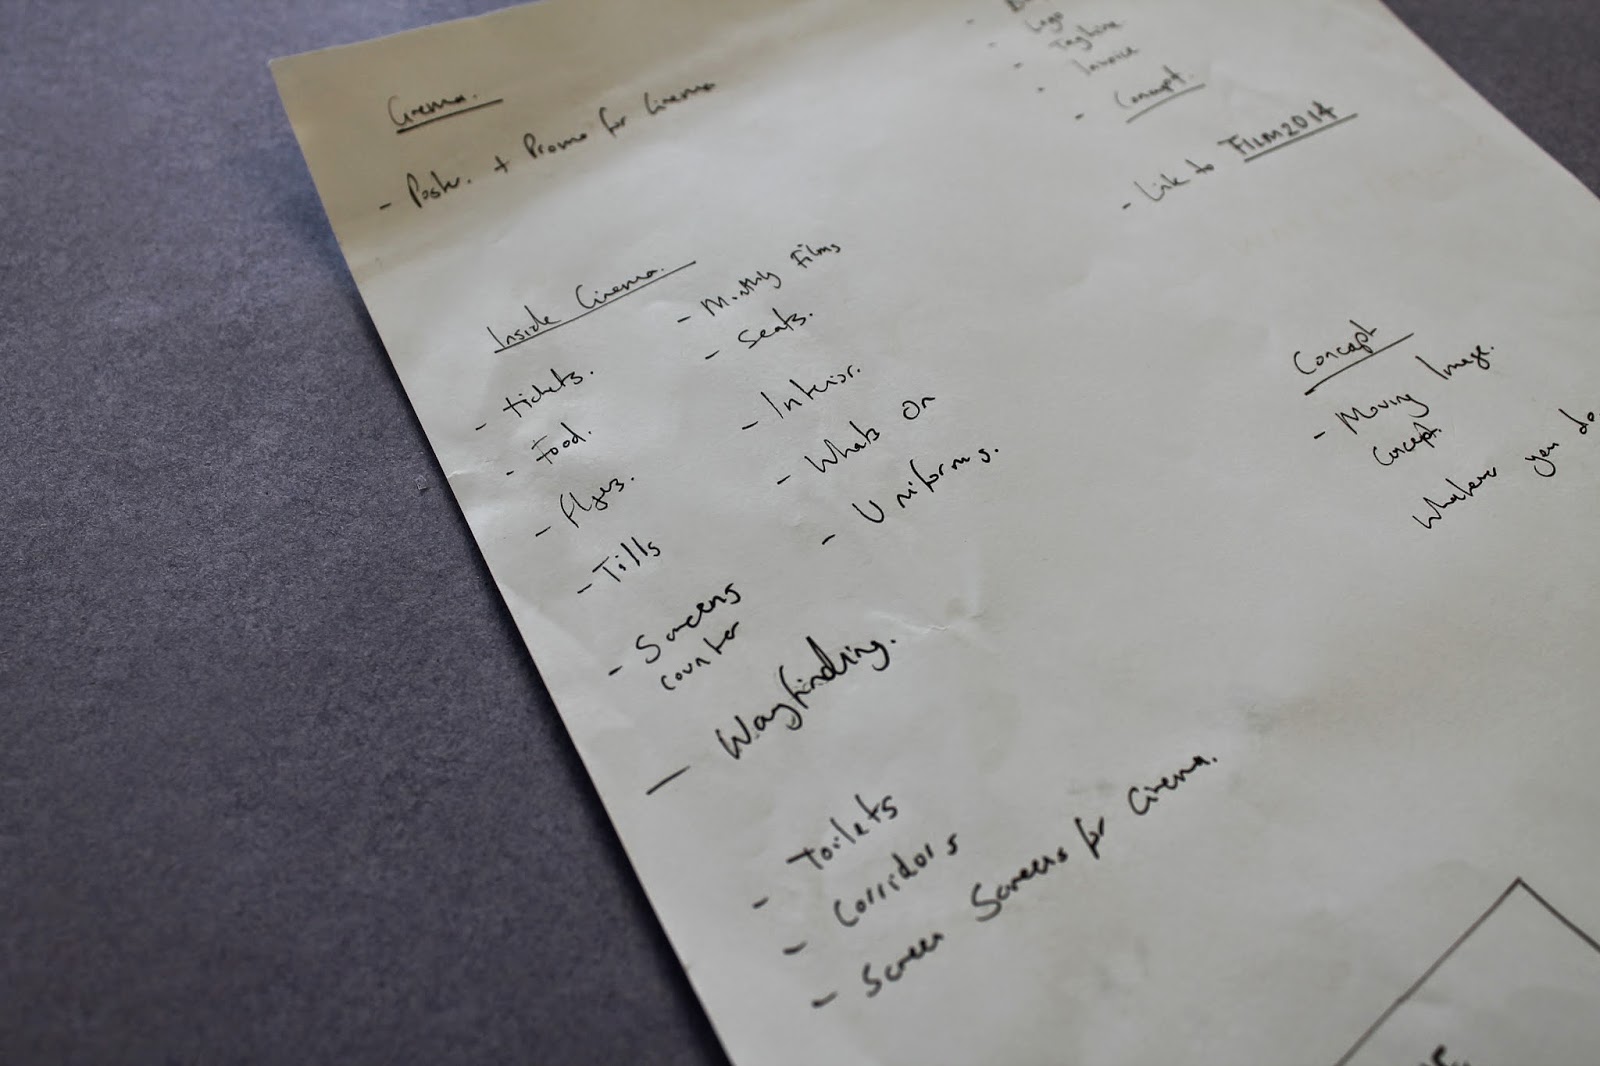 Cinema.
- Poster. + Promo for Cinema
Inside Cinema.
- tickets.
- Food.
- Flyers.
- Tills
- Screens
counter
- Monthly Films
- Seats.
- Interior.
- Whats On
- Uniforms.
- Wayfinding.
- Toilets
- Corridors
- Screen Screens for Cinema.
- Logo
- Tagline
- Invoice
- Concept.
- Link to FILM2014
Concept
- Moving Image.
Concept.
Whatever you do